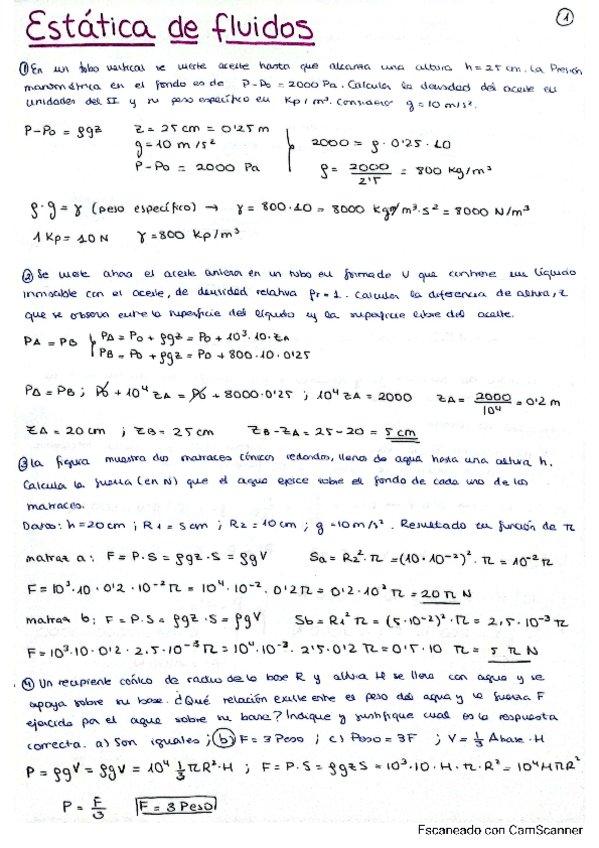 Estática de fluidos
1
① En un tubo vertical se vierte aceite hasta que alcanza una altura h = 25 cm. La Presión
manométrica en el fondo es de P-P0 = 2000 Pa. Calcular la densidad del aceite en
unidades del SI y su peso específico en Kp/m³. Considerar g = 10 m/s².
P-P0 = ρgz z = 25 cm = 0'25 m
g = 10 m/s²
P-P0 = 2000 Pa
2000 = ρ · 0'25 · 10
ρ = 2000/2'5 = 800 kg/m³
ρ·g = γ (peso específico) → γ = 800·10 = 8000 kg/m²·s² = 8000 N/m³
1 Kp = 10 N γ = 800 Kp/m³
② Se vierte ahora el aceite anterior en un tubo en forma de U que contiene un líquido
inmiscible con el aceite, de densidad relativa ρr = 1. Calcular la diferencia de altura, z
que se observa entre la superficie del líquido y la superficie libre del aceite.
PA = PB PA = P0 + ρgz = P0 + 10³·10·zA
PB = P0 + ρgz = P0 + 800·10·0'25
PA = PB ; P0 + 10⁴ zA = P0 + 8000·0'25 ; 10⁴ zA = 2000 zA = 2000/10⁴ = 0'2 m
zA = 20 cm ; zB = 25 cm zB - zA = 25 - 20 = 5 cm
③ La figura muestra dos matraces cónicos redondos, lleno de agua hasta una altura h.
Calcula la fuerza (en N) que el agua ejerce sobre el fondo de cada uno de los
matraces.
Datos: h = 20 cm ; R1 = 5 cm ; R2 = 10 cm ; g = 10 m/s². Resultado en función de π
matraz a: F = P·S = ρgz·S = ρgV Sa = R2²·π = (10·10⁻²)²·π = 10⁻²π
F = 10³·10·0'2·10⁻²π = 10⁴·10⁻²·0'2π = 0'2·10²π = 20π N
matraz b: F = P·S = ρgz·S = ρgV Sb = R1²π = (5·10⁻²)²·π = 2,5·10⁻³π
F = 10³·10·0'2·2,5·10⁻³π = 10⁴·10⁻³·2'5·0'2π = 0'5·10π = 5πN
④ Un recipiente cónico de radio de la base R y altura H se llena con agua y se
apoya sobre su base. ¿Qué relación existe entre el peso del agua y la fuerza F
ejercida por el agua sobre su base? Indique y justifique cual es la respuesta
correcta. a) Son iguales ; b) F = 3 Peso ; c) Peso = 3F ; V = 1/3 Abase·H
P = ρgV = ρgV = 10⁴ 1/3 πR²·H ; F = P·S = ρgzS = 10³·10·H·π·R² = 10⁴HπR²
P = F/3 F = 3 Peso
Escaneado con CamScanner